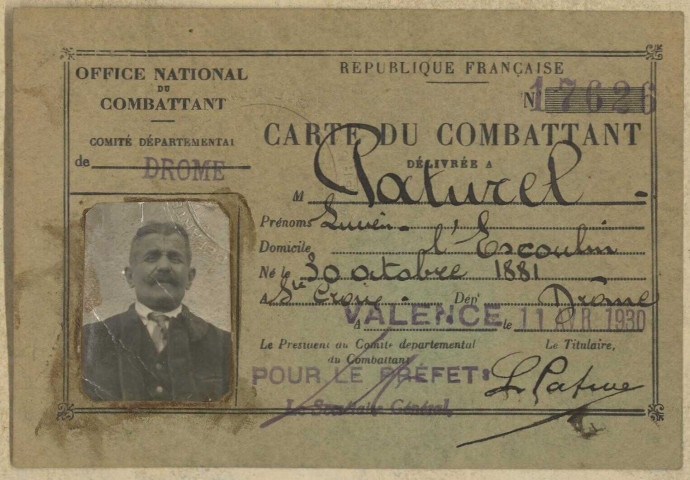 OFFICE NATIONAL
DU
COMBATTANT
COMITÉ DÉPARTEMENTAL
de DROME
RÉPUBLIQUE FRANÇAISE
N° 17626
CARTE DU COMBATTANT
DÉLIVRÉE A
M Paturel
Prénoms Lucien
Domicile l'Escoulin
Né le 30 octobre 1881
A Ste Croix Dépt Drôme
A VALENCE le 11 AVR 1930
Le Président du Comité départemental
du Combattant
Le Titulaire,
POUR LE PRÉFET:
Le Secrétaire Général,
L Paturel